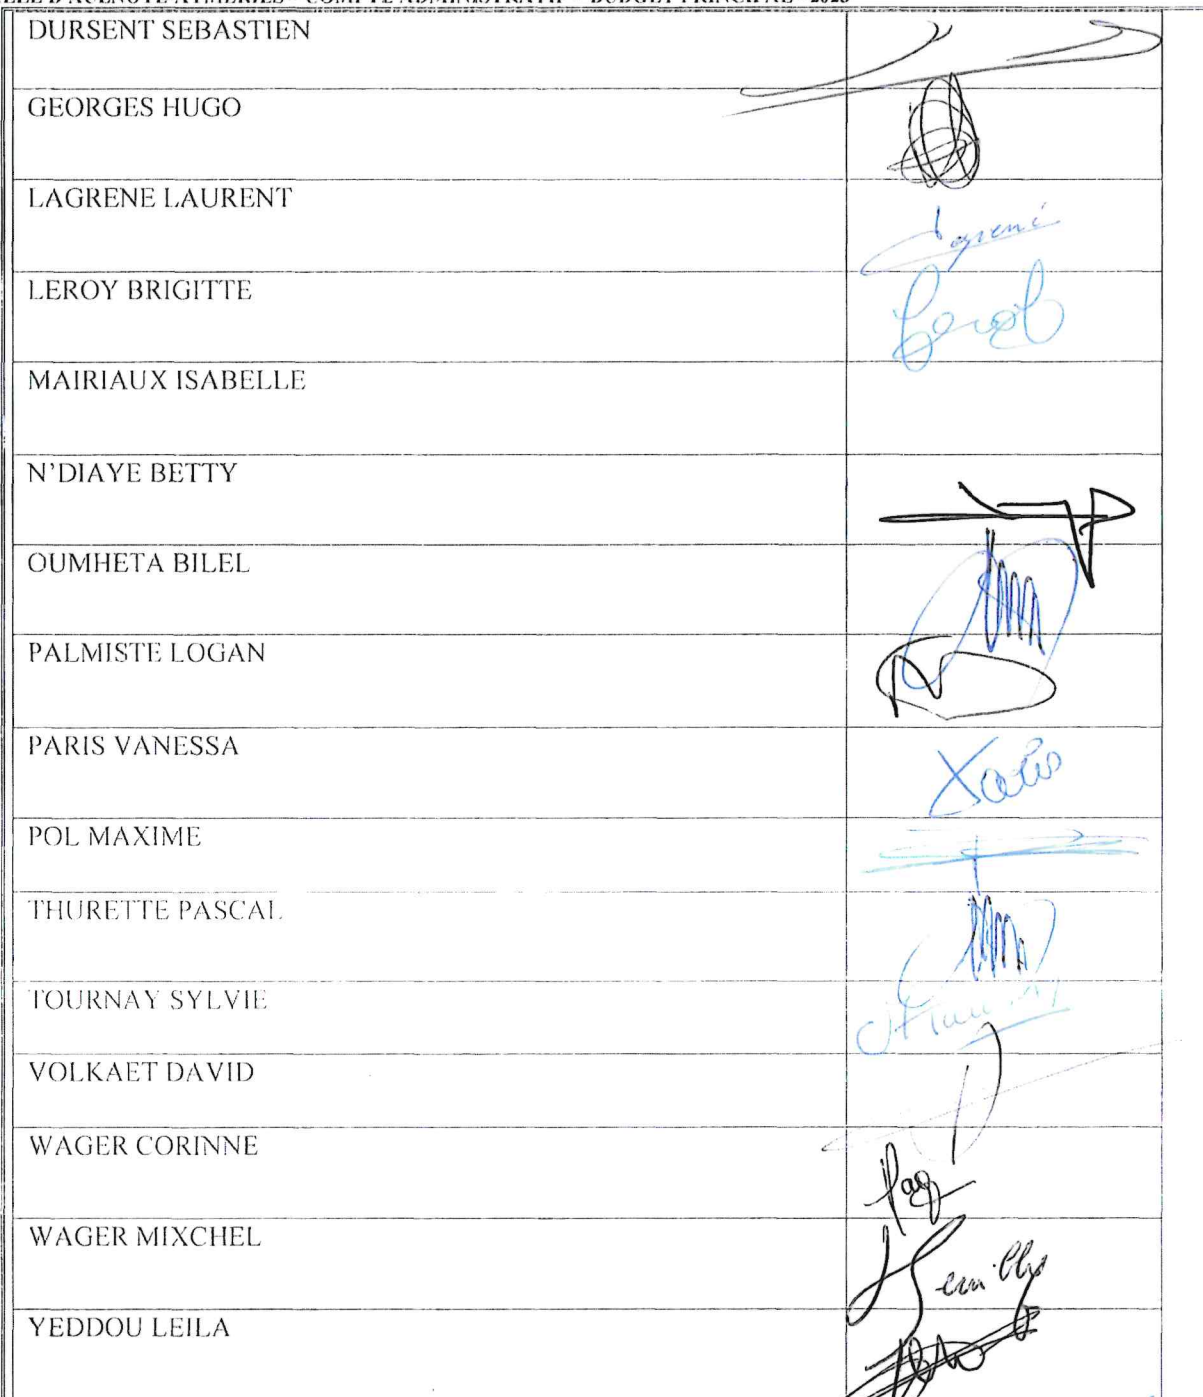 COMPTE ADMINISTRATIF - BUDGET PRINCIPAL - 2023
DURSENT SEBASTIEN
GEORGES HUGO
LAGRENE LAURENT
LEROY BRIGITTE
MAIRIAUX ISABELLE
N'DIAYE BETTY
OUMHETA BILEL
PALMISTE LOGAN
PARIS VANESSA
POL MAXIME
THURETTE PASCAL
TOURNAY SYLVIE
VOLKAET DAVID
WAGER CORINNE
WAGER MIXCHEL
YEDDOU LEILA